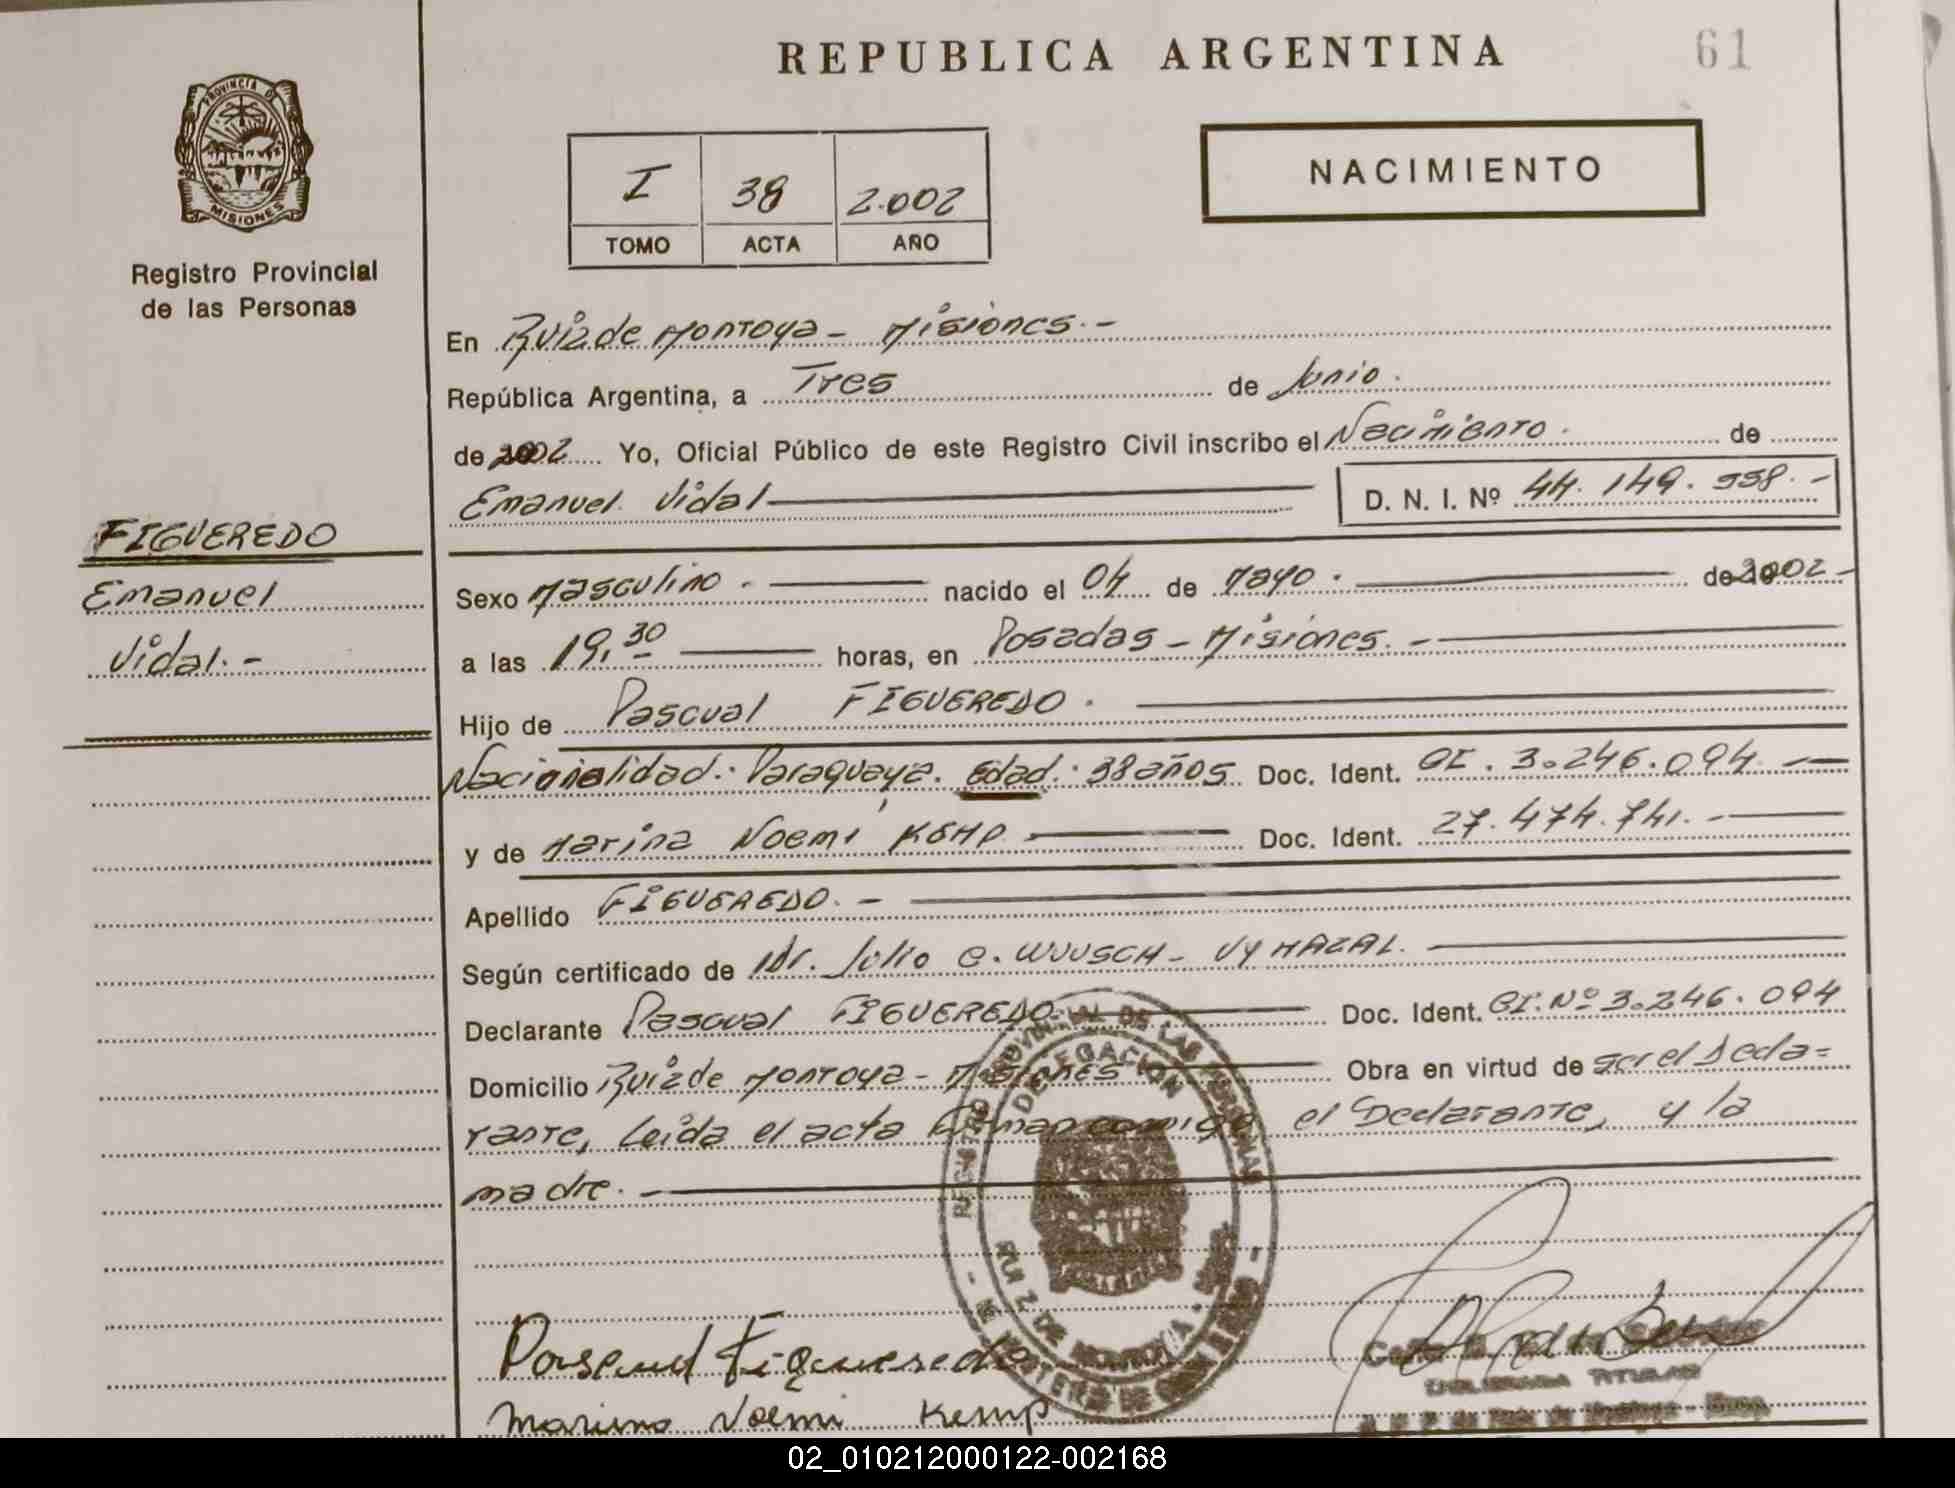 REPUBLICA ARGENTINA
61
PROVINCIA DE MISIONES
Registro Provincial
de las Personas
I 38 2.002
TOMO ACTA AÑO
NACIMIENTO
En Ruiz de Montoya - Misiones. -
República Argentina, a Tres de Junio.
de 2002 Yo, Oficial Público de este Registro Civil inscribo el Nacimiento. de
Emanuel Vidal D. N. I. Nº 44.149.558. -
FIGUEREDO
Emanuel
Vidal. -
Sexo Masculino. nacido el 04 de Mayo. de 2002 -
a las 19,30 horas, en Posadas - Misiones. -
Hijo de Pascual FIGUEREDO.
Nacionalidad: Paraguaya. Edad: 38 años Doc. Ident. CI. 3.246.094
y de Marina Noemi KEMP. Doc. Ident. 27.474.741. -
Apellido FIGUEREDO. -
Según certificado de Dr. Julio C. WUUSCH - VYHAZAL.
Declarante Pascual FIGUEREDO Doc. Ident. CI. Nº 3.246.094
Domicilio Ruiz de Montoya - Misiones Obra en virtud de ser el Decla=
rante, Leida el acta Firman comigo el Declarante, y la
madre.
REGISTRO PROVINCIAL DE LAS PERSONAS
DELEGACION
RUIZ DE MONTOYA
Figueredo
Noemi Kemp
TITULAR
02_010212000122-002168